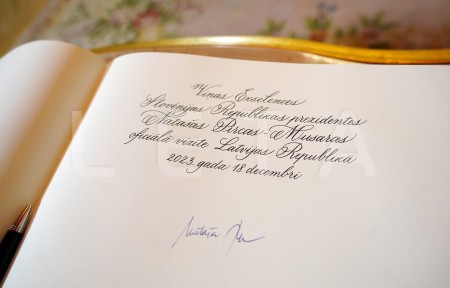 Viņas Ekselences
Slovēnijas Republikas prezidentes
Natašas Pircas-Musaras
oficiālā vizīte Latvijas Republikā
2023. gada 18. decembrī
Nataša